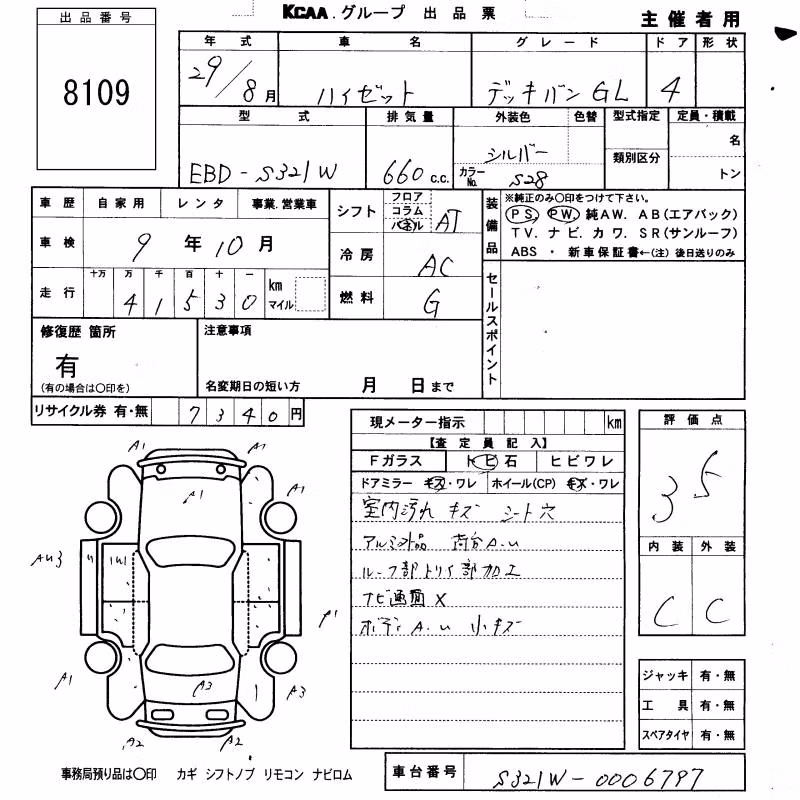 出品番号
8109
KCAA.グループ 出品票
主催者用
年式 車名 グレード ドア 形状
29/8月 ハイゼット デッキバン GL 4
型式 排気量 外装色 色替 型式指定 定員・積載
EBD-S321W 660 c.c. シルバー カラーNo. S28 類別区分 名 トン
車歴 自家用 レンタ 事業.営業車
車検 9年10月
走行 十万 万 千 百 十 一 km マイル
41530
シフト フロア コラム パネル AT
冷房 AC
燃料 G
装備品
※純正のみ〇印をつけて下さい。
PS. PW. 純AW. AB(エアバック)
TV. ナビ. カワ. SR(サンルーフ)
ABS ・ 新車保証書←(注)後日送りのみ
セールスポイント
修復歴 箇所
有
(有の場合は〇印を)
注意事項
名変期日の短い方 月 日まで
リサイクル券 有・無 7340円
現メーター指示 km
【査定員記入】
Fガラス トビ石 ヒビワレ
ドアミラー キズ・ワレ ホイール(CP) キズ・ワレ
室内汚れ キズ シート穴
アルミ外品 荷台A.U
ルーフ部トリイ部加工
ナビ画面X
ボディA.U 小キズ
評価点
3.5
内装 外装
C C
A1 A1
A1 A1
AU3
A1
A1 A3 A3
A2 A2
ジャッキ 有・無
工具 有・無
スペアタイヤ 有・無
事務局預り品は〇印 カギ シフトノブ リモコン ナビロム
車台番号 S321W-0006797